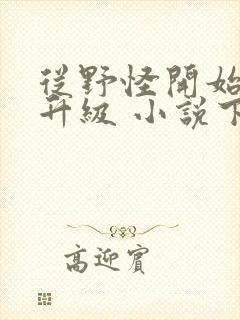 從野怪開始
升級 小說下
高迎賓